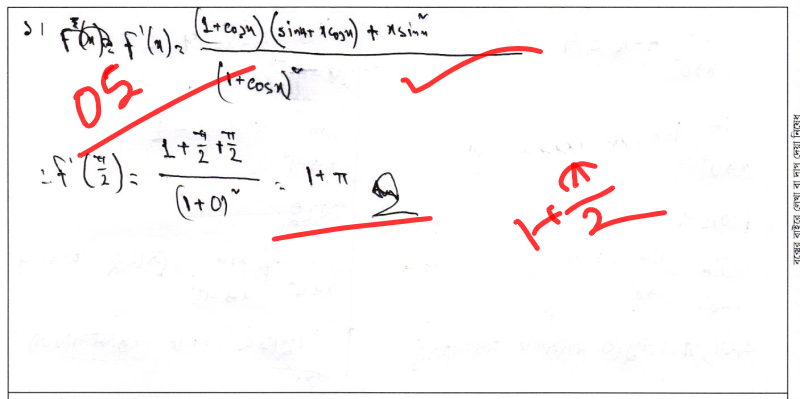 ১। f'(x) = ((1+cosx)(sinx+xcosx) + xsin²x) / (1+cosx)²
05
∴ f'(π/2) = (1 + π/2 + π/2) / (1+0)² = 1+π
1+π/2
বক্সের বাইরে লেখা বা দাগ দেয়া নিষেধ